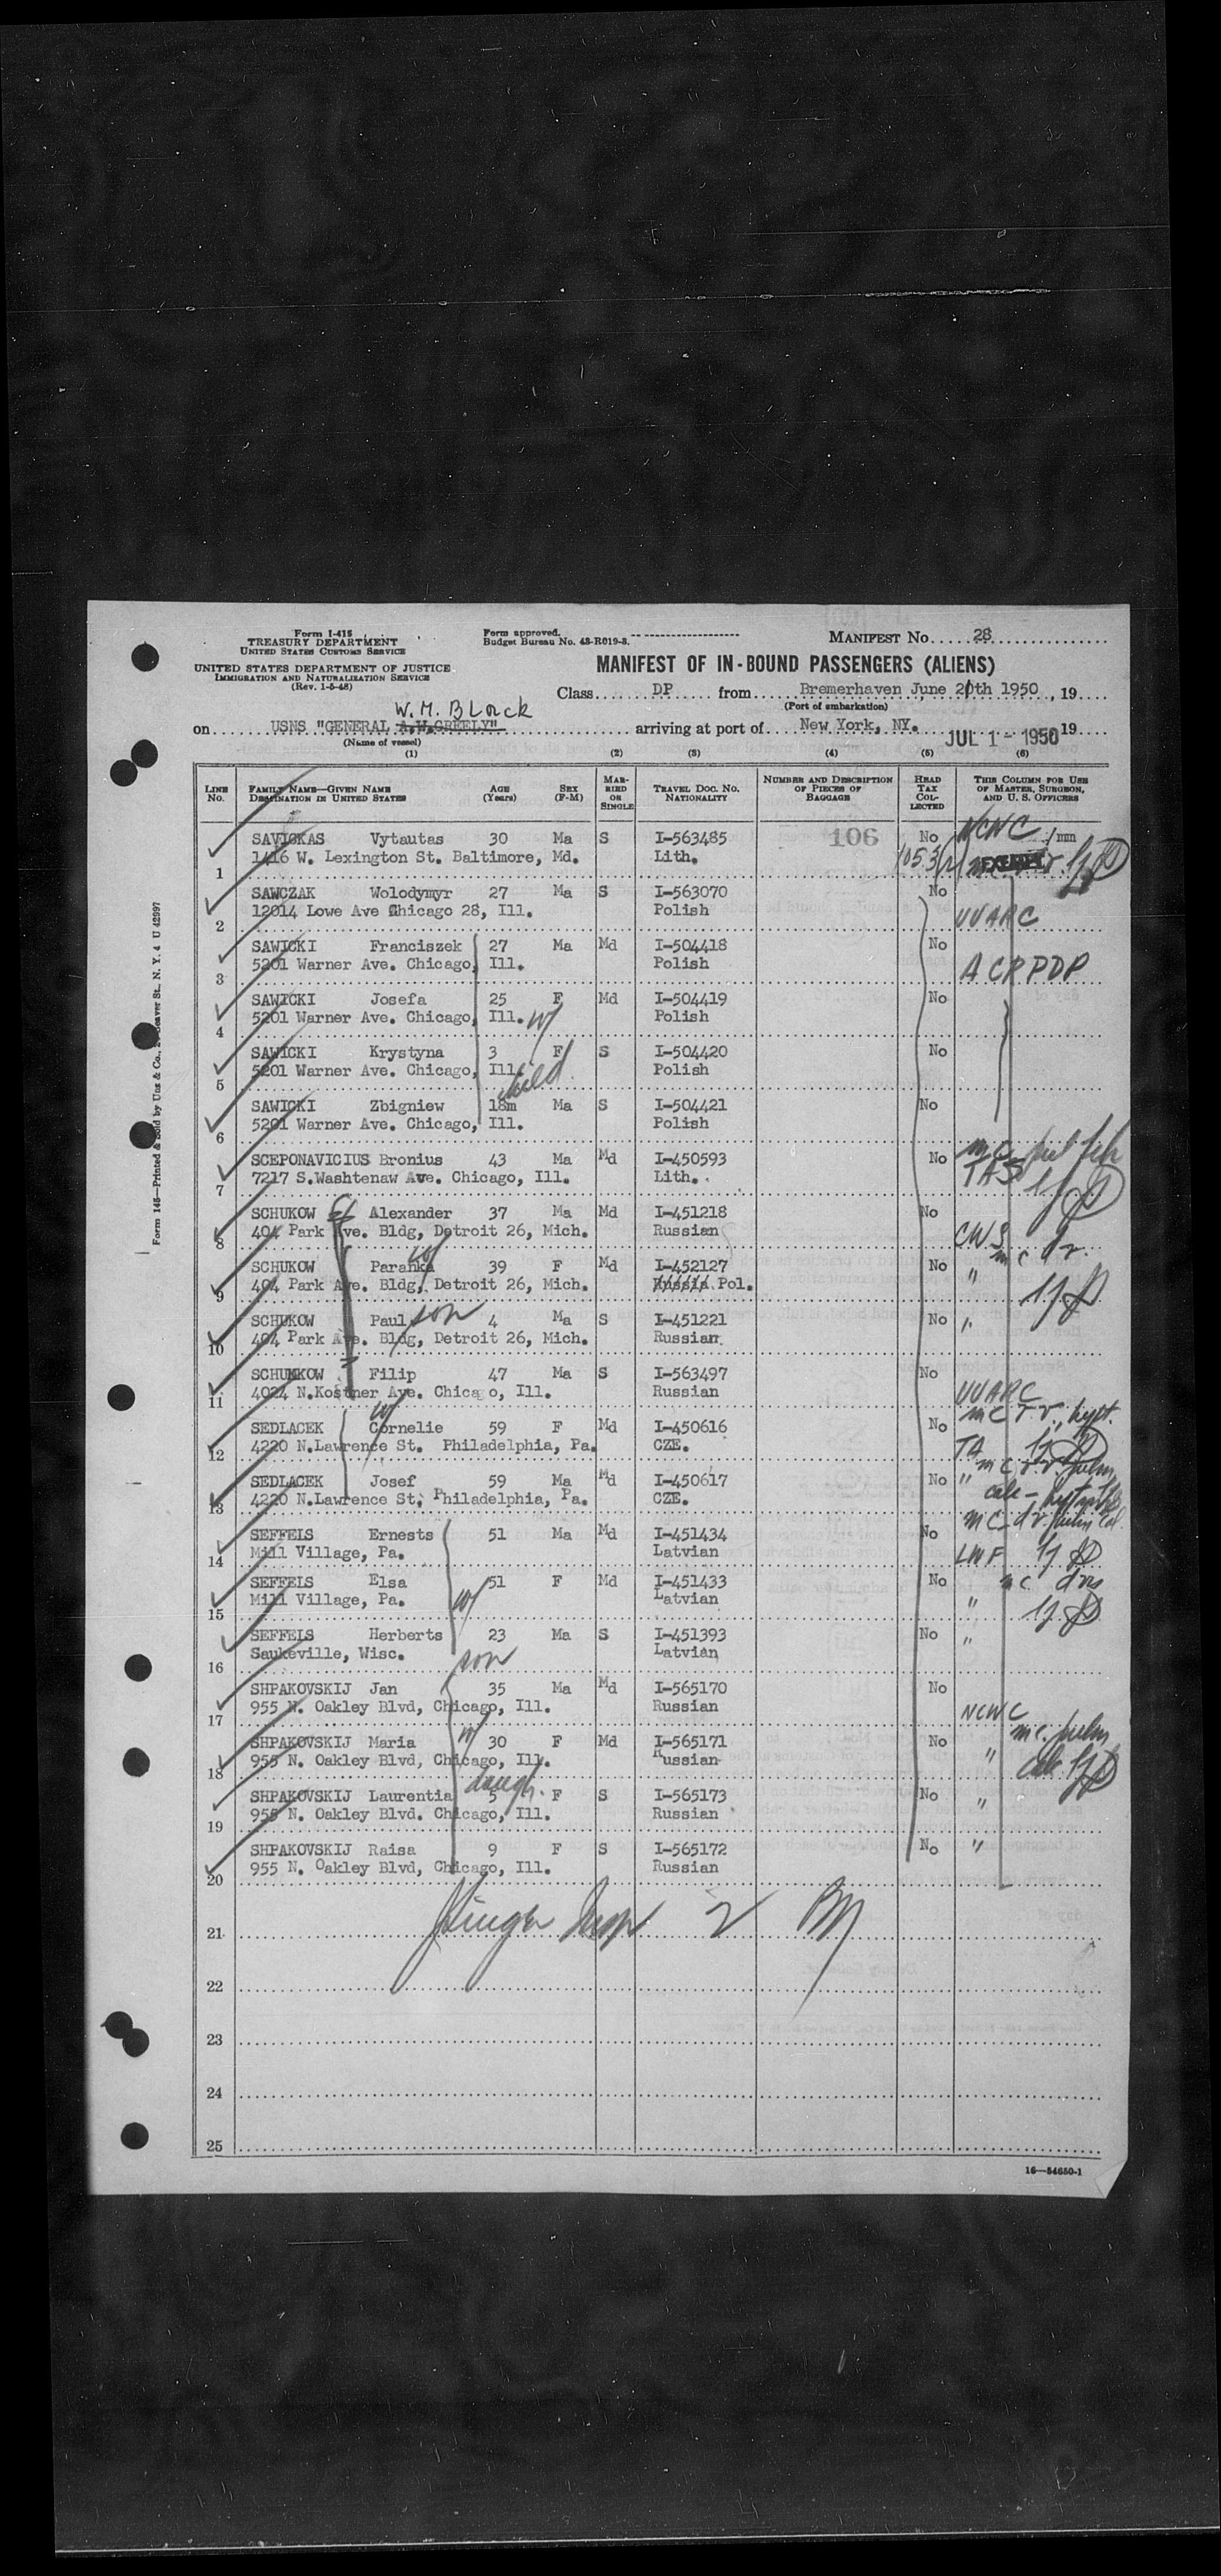 Form I-415
TREASURY DEPARTMENT
UNITED STATES CUSTOMS SERVICE
UNITED STATES DEPARTMENT OF JUSTICE
IMMIGRATION AND NATURALIZATION SERVICE
(Rev. 1-5-48)
Form approved.
Budget Bureau No. 43-R019-3.
MANIFEST No. 28
MANIFEST OF IN-BOUND PASSENGERS (ALIENS)
Class DP from Bremerhaven June 20th 1950, 19
(Port of embarkation)
W.M. BLACK
on USNS "GENERAL A.W.GREELY" arriving at port of New York, NY. JUL 1 - 1950 19
(Name of vessel)
(1) (2) (3) (4) (5) (6)
LINE No. FAMILY NAME—GIVEN NAME DESTINATION IN UNITED STATES AGE (Years) SEX (F-M) MARRIED OR SINGLE TRAVEL DOC. NO. NATIONALITY NUMBER AND DESCRIPTION OF PIECES OF BAGGAGE HEAD TAX COLLECTED THIS COLUMN FOR USE OF MASTER, SURGEON, AND U. S. OFFICERS
SAVICKAS Vytautas 30 Ma S I-563485 106 No NCWC
1 1416 W. Lexington St. Baltimore, Md. Lith.
SAWCZAK Wolodymyr 27 Ma S I-563070 No
2 12014 Lowe Ave Chicago 28, Ill. Polish UUARC
SAWICKI Franciszek 27 Ma Md I-504418 No
3 5201 Warner Ave. Chicago, Ill. Polish ACRPDP
SAWICKI Josefa 25 F Md I-504419 No
4 5201 Warner Ave. Chicago, Ill. W Polish
SAWICKI Krystyna 3 F S I-504420 No
5 5201 Warner Ave. Chicago, Ill. child Polish
SAWICKI Zbigniew 18m Ma S I-504421 No
6 5201 Warner Ave. Chicago, Ill. Polish
SCEPONAVICIUS Bronius 43 Ma Md I-450593 No
7 7217 S.Washtenaw Ave. Chicago, Ill. Lith. TAS
SCHUKOW Alexander 37 Ma Md I-451218 No
8 404 Park Ave. Bldg, Detroit 26, Mich. Russian CWS
SCHUKOW Paranka W 39 F Md I-452127 No "
9 404 Park Ave. Bldg, Detroit 26, Mich. Russia Pol.
SCHUKOW Paul son 4 Ma S I-451221 No "
10 404 Park Ave. Bldg, Detroit 26, Mich. Russian
SCHUMKOW Filip 47 Ma S I-563497 No
11 4024 N.Kostner Ave. Chicago, Ill. Russian UUARC
SEDLACEK Cornelie W 59 F Md I-450616 No
12 4220 N.Lawrence St. Philadelphia, Pa. CZE. TA
SEDLACEK Josef 59 Ma Md I-450617 No "
13 4220 N.Lawrence St. Philadelphia, Pa. CZE.
SEFFELS Ernests 51 Ma Md I-451434 No
14 Mill Village, Pa. Latvian LWF
SEFFELS Elsa 51 F Md I-451433 No
15 Mill Village, Pa. W Latvian "
SEFFELS Herberts 23 Ma S I-451393 No "
16 Saukeville, Wisc. son Latvian
SHPAKOVSKIJ Jan 35 Ma Md I-565170 No
17 955 N. Oakley Blvd, Chicago, Ill. Russian NCWC
SHPAKOVSKIJ Maria W 30 F Md I-565171 No "
18 955 N. Oakley Blvd, Chicago, Ill. Russian
SHPAKOVSKIJ Laurentia daugh. 5 F S I-565173 No "
19 955 N. Oakley Blvd. Chicago, Ill. Russian
SHPAKOVSKIJ Raisa 9 F S I-565172 No "
20 955 N. Oakley Blvd, Chicago, Ill. Russian
21
22
23
24
25
16—54650-1